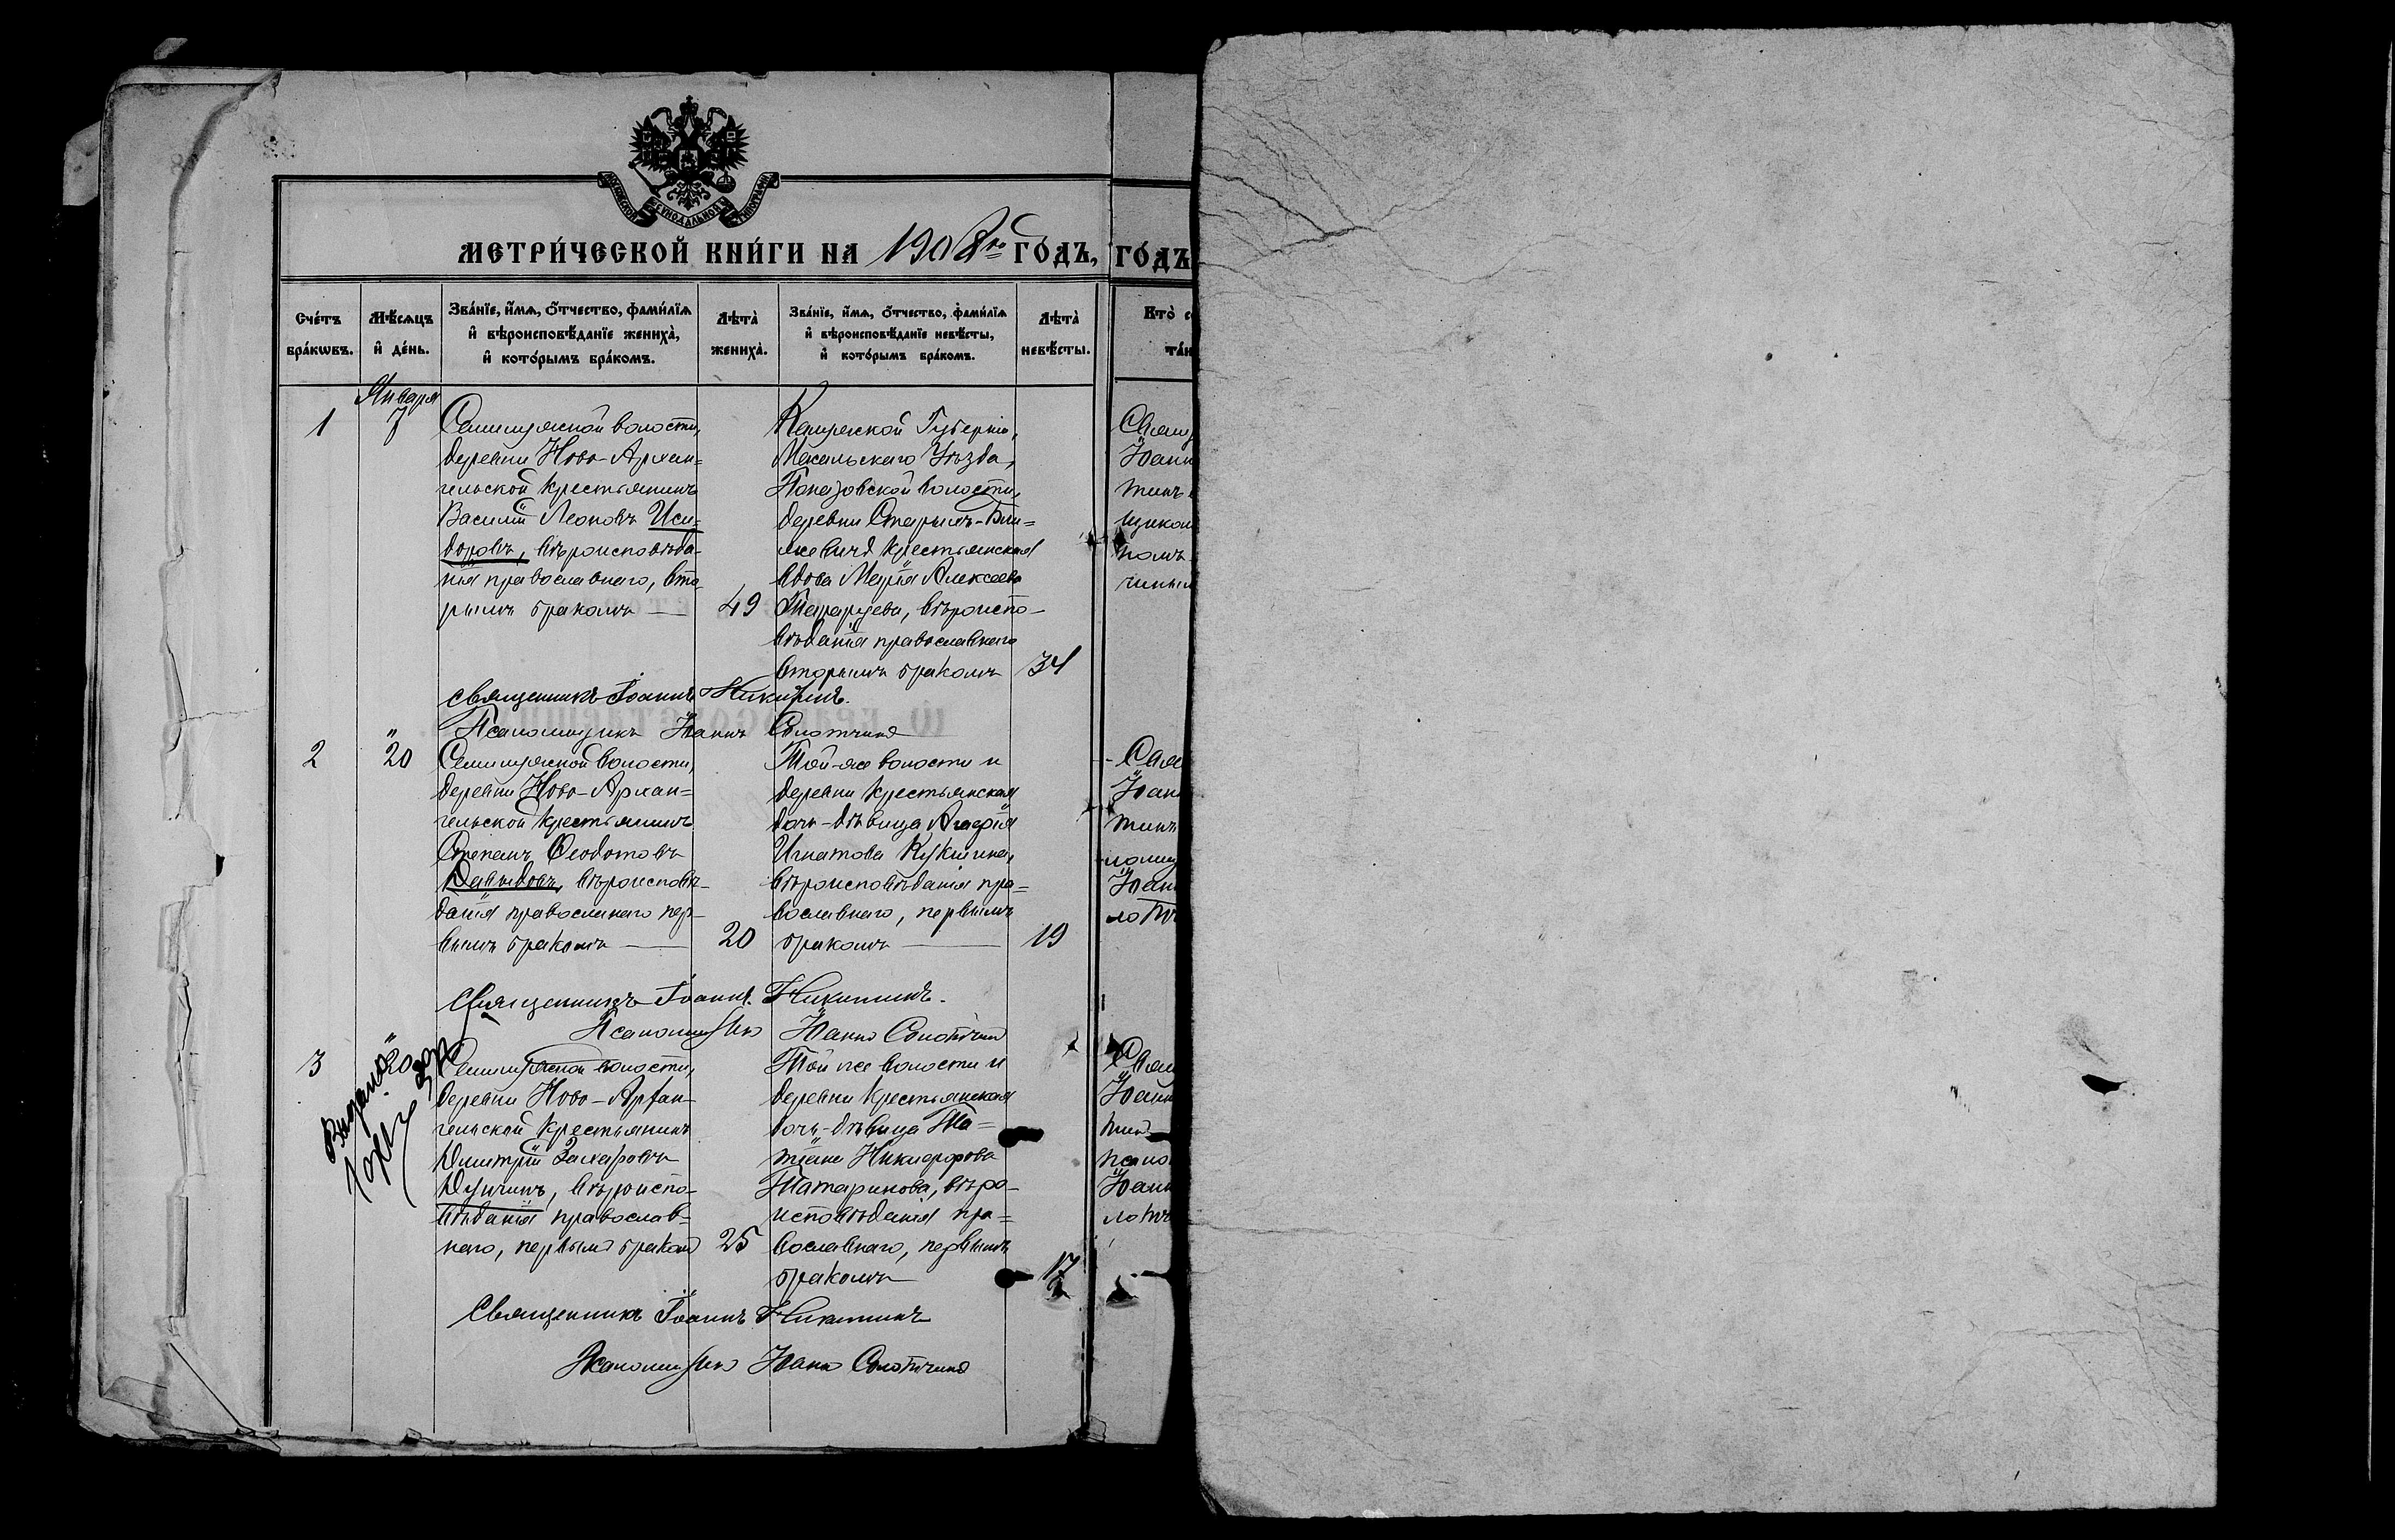 МОСКОВСКОЙ СѴНОДАЛЬНОЙ ТИПОГРАФІИ
МЕТРИ́ЧЕСКОЙ КНИ́ГИ НА 1908го ГО́ДЪ,
ГО́ДЪ
Сче́тъ бра́кѡвъ.
Мѣ́сѧцъ и҆ де́нь.
Зва́нїе, и҆́мѧ, ѻ҆́тчество, фами́лїѧ и҆ вѣроисповѣ́данїе жениха̀, и҆ кото́рымъ бра́комъ.
Лѣта̀ жениха̀.
Зва́нїе, и҆́мѧ, ѻ҆́тчество, фами́лїѧ и҆ вѣроисповѣ́данїе невѣ́сты, и҆ кото́рымъ бра́комъ.
Лѣта̀ невѣ́сты.
Кто̀
Января
1
7
Семилужской волости,
деревни Ново-Архан=
гельской крестьянинъ
Василій Леоновъ Иси-
доровъ, вѣроисповѣда-
нія православнаго, вто-
рымъ бракомъ
49
Калужской Губерніи,
Уѣзда,
волости,
деревни
крестьянская
вдова Марія Алексеева
вѣроиспо-
вѣданія православнаго
вторымъ бракомъ
34
Священникъ Іоаннъ Никитинъ.
Псаломщикъ Іоаннъ Солотчинъ
2
" 20
Семилужской волости,
деревни Ново-Архан=
гельской крестьянинъ
Степанъ Ѳеодотовъ
Давыдовъ, вѣроисповѣ-
данія православнаго пер-
вымъ бракомъ
20
Той-же волости и
деревни крестьянская
дочь-дѣвица Агафія
Игнатова Кукшина,
вѣроисповѣданія пра=
вославнаго, первымъ
бракомъ
19
Священникъ Іоаннъ Никитинъ.
Псаломщикъ Іоаннъ Солотчинъ
3
" 20
Выдано
Семилужской волости,
деревни Ново-Архан-
гельской крестьянинъ
Димитрій Захаровъ
вѣроиспо-
вѣданія православ=
наго, первымъ бракомъ
25
Той же волости и
деревни крестьянская
дочь-дѣвица Та=
тіана Никифорова
Татаринова, вѣро-
исповѣданія пра=
вославнаго, первымъ
бракомъ
17
Священникъ Іоаннъ Никитинъ
Псаломщикъ Іоаннъ Солотчинъ